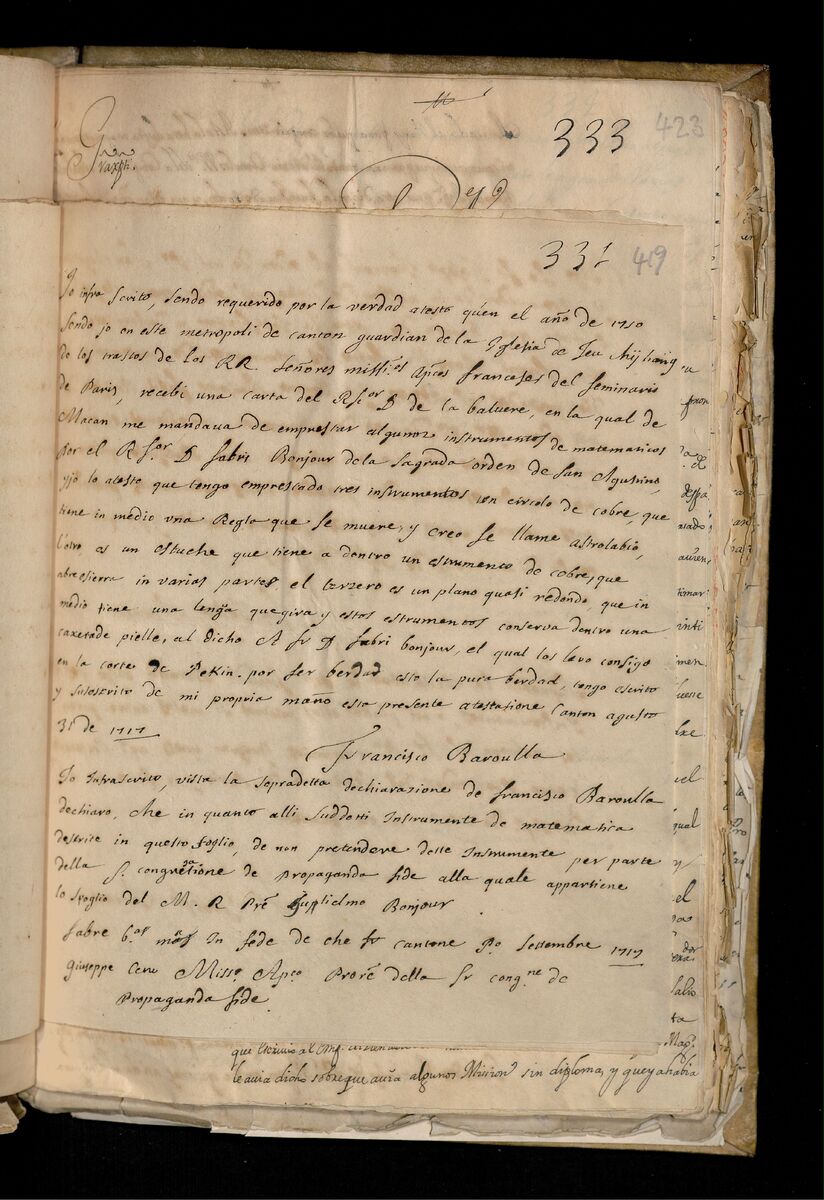 333
423
331
419
Jo infra scrito, sendo requerido por la verdad atesto qúen el año de 1710
sendo jo en este metropoli de canton guardian de la Iglesia de
de los trastos de los RR. señores franceses del seminario
de Paris, recebi una carta del de la baluere, en la qual de
Macan me mandava de emprestar algunos instrumentos de matematicos
Por el fabri Bonjour de la sagrada orden de san Agustino,
yjo lo atesto que tengo emprestado tres instrumentos un circolo de cobre, que
tiene in medio una Regla que se muere, y creo se llame astrolabio,
l'otro es un estuche que tiene a dentro un estrumento de cobre, que
abre esierra in varias partes, el terzero es un plano quasi redondo, que in
medio tiene una lengja que gira, y estos estrumentos conserva dentro una
caxeta de pielle, al dicho fabri bonjour, el qual los levo consigo
en la corte de Pekin. por ser berdad esto la pura berdad, tengo escrito
y suboscrito de mi propria maño esta presente atestatione Canton agusto
31 de 1717
Francisco Baroulla
Io Infrascrito, vista la sopradetta dechiarazione de francisco Baroulla
dechiaro, che in quanto alli suddotti Instrumente de matematica
destrite in questo foglio, de non pretendere dette Instrumente per parte
della congretione de Propaganda fide alla quale appartiene
lo spoglio del M. R Guglielmo Bonjour
fabre In fede de che cantone settembre 1717
Giuseppe Ceru Miss. Apco Prore della cong.ne de
Propaganda fide.
le avia dicho sobreque avia algunos Mission sin diploma, y que ya habia